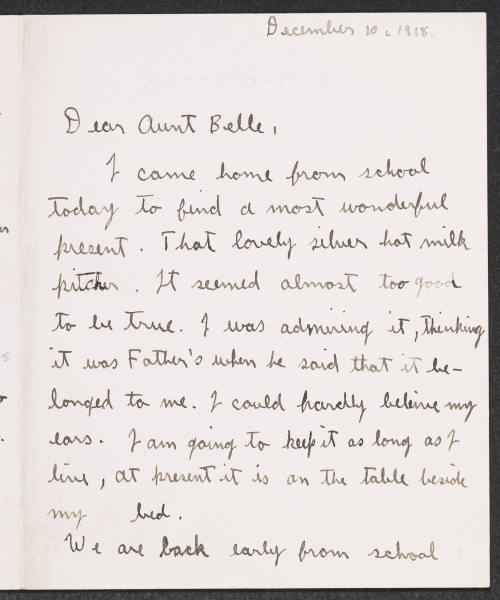 December 10, 1918.
Dear Aunt Belle,
I came home from school
today to find a most wonderful
present. That lovely silver hot milk
pitcher. It seemed almost too good
to be true. I was admiring it, thinking
it was Father's when he said that it be-
longed to me. I could hardly beleive my
ears. I am going to keep it as long as I
live, at present it is on the table beside
my bed.
We are back early from school